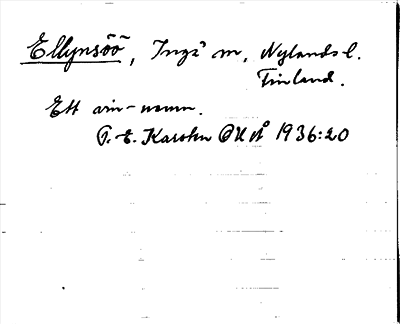 Ellynsöö, Ingå m, Nylands l.
Finland.
Ett ain-namn.
T. E. Karsten 1936:20